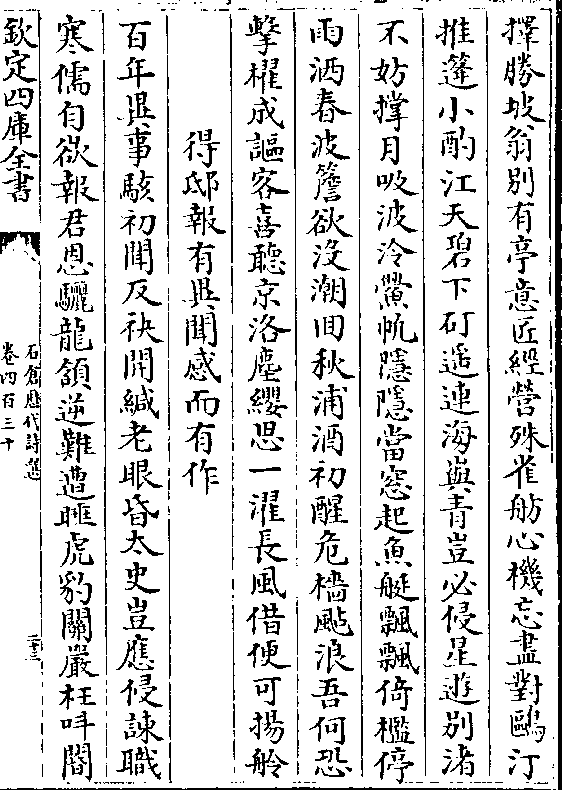 擇勝坡翁別有亭意匠經營殊雀舫心機忘盡對鷗汀
推篷小酌江天碧下矴遥連海嶼青豈必侵星遊别渚
不妨撑月吸波泠鱟帆隱隱當窓起魚艇飄飄倚檻停
雨洒春波簷欲没潮回秋浦酒初醒危檣颭浪吾何恐
擊櫂成謳客喜聽京洛塵纓思一濯長風借便可揚舲
得邸報有異聞感而有作
百年異事駭初聞反袂開緘老眼昏太史豈應侵諫職
寒儒自欲報君恩驪龍頷逆難遭睡虎豹關嚴枉呌閽
欽定四庫全書
石倉歷代詩選
卷四百三十
二十三